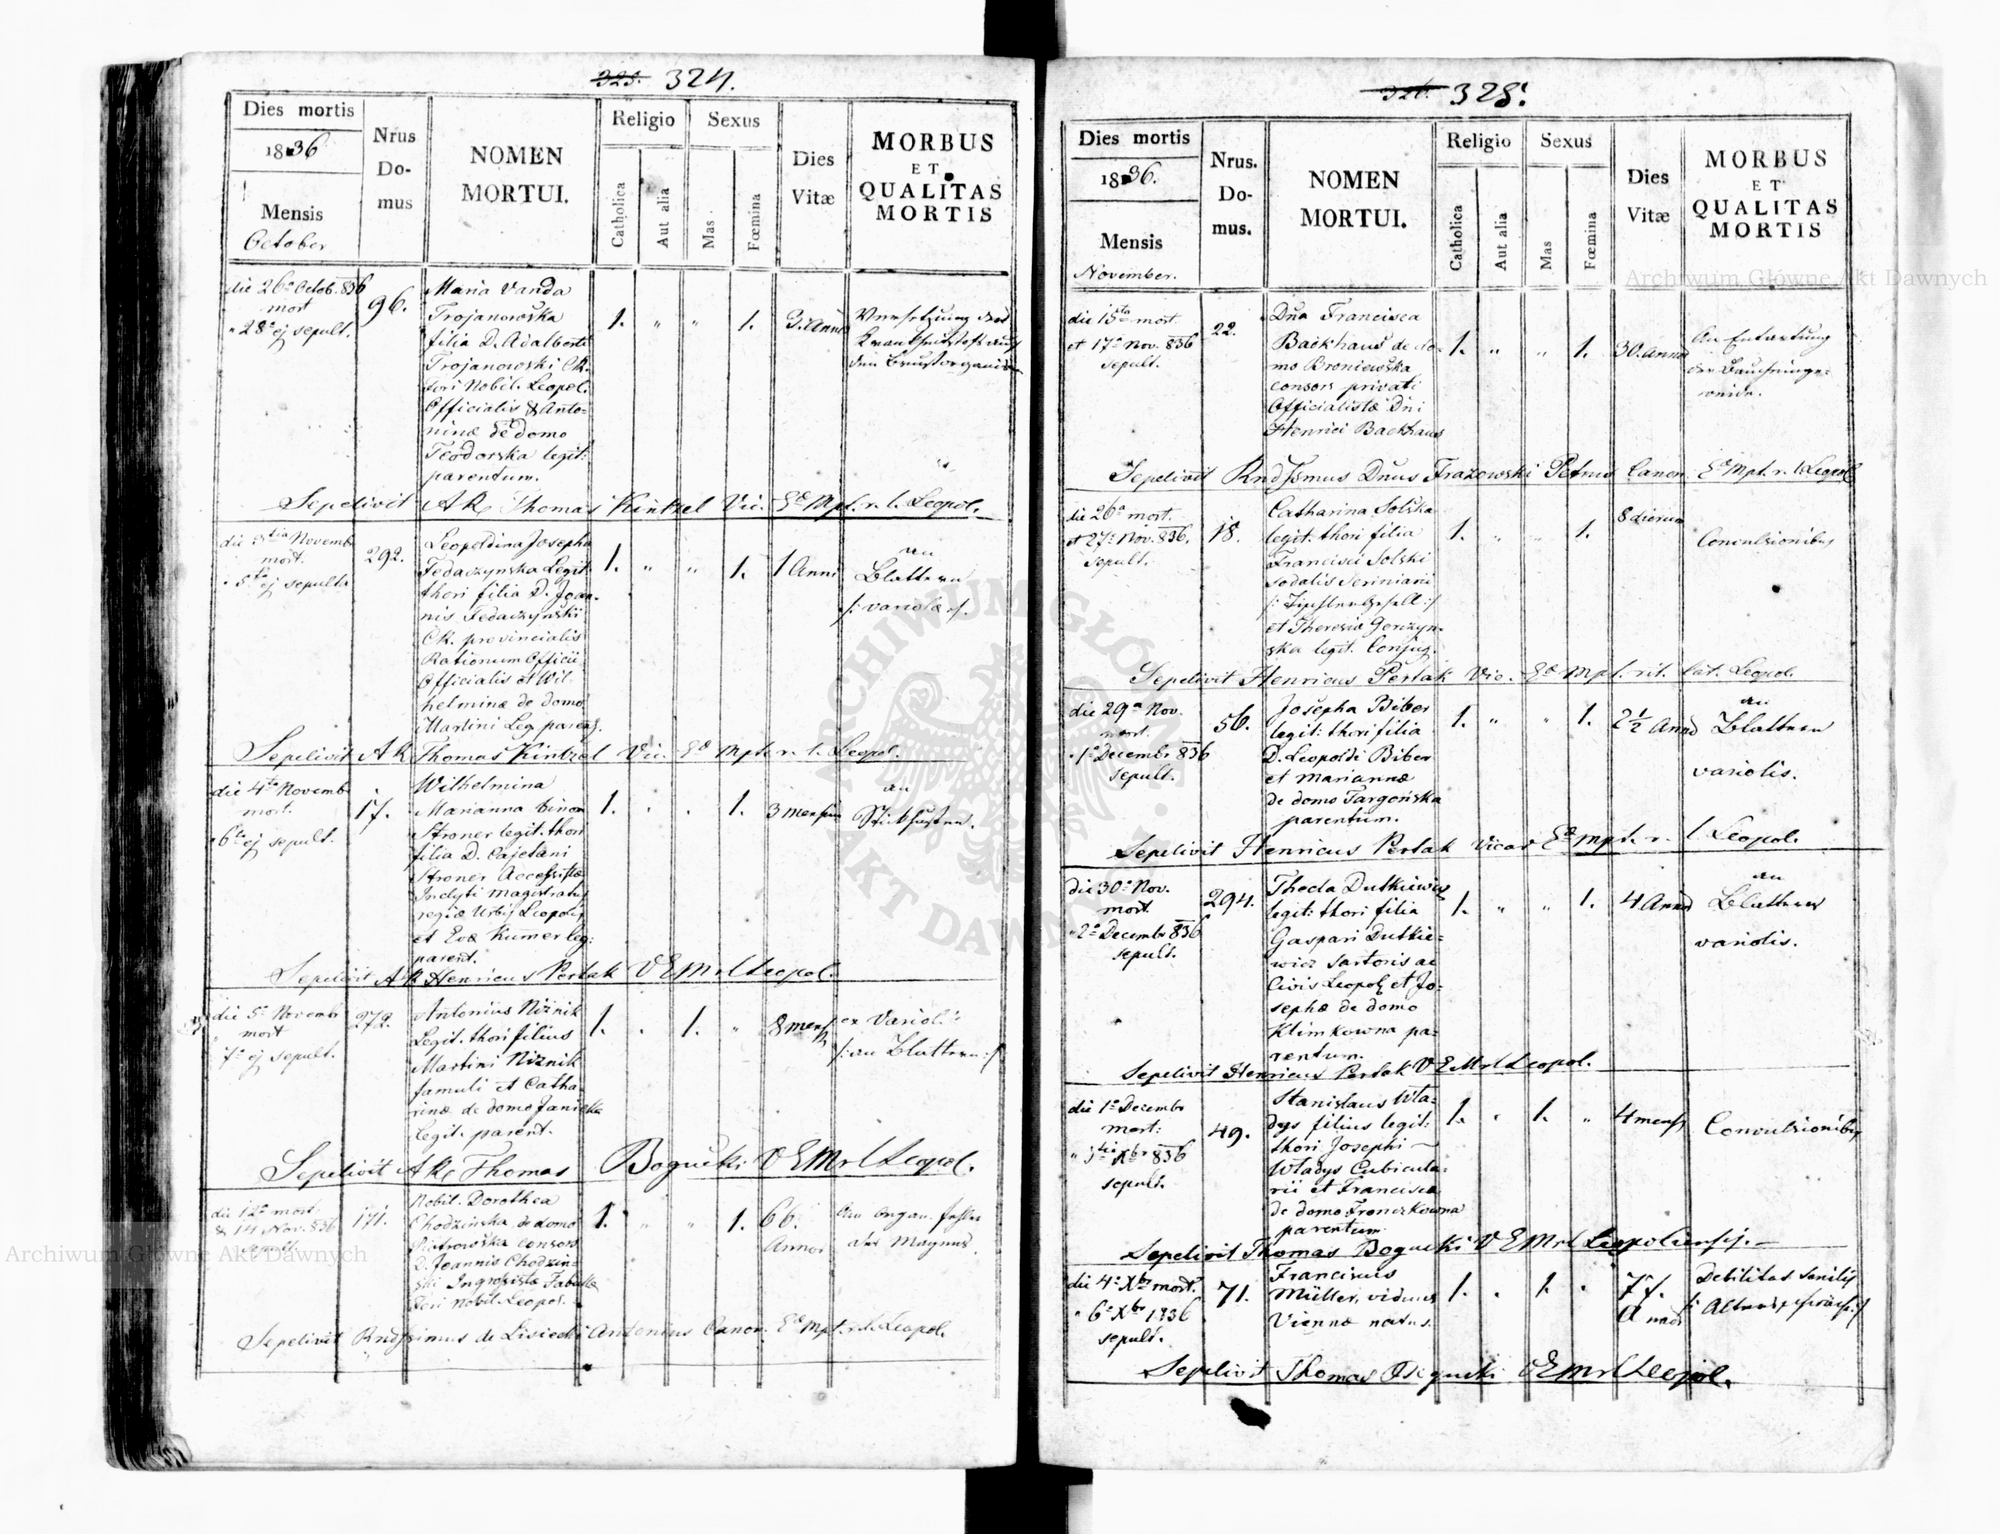 325. 324.
Dies mortis
1836
Mensis
October
Nrus
Do-
mus
NOMEN
MORTUI.
Religio
Catholica
Aut alia
Sexus
Mas
Fœmina
Dies
Vitæ
MORBUS
ET
QUALITAS
MORTIS
die 26a Octob. 836
mort
" 28a ej sepult.
96.
Maria Vanda
Trojanowska
filia D. Adalberti
Trojanowski CR.
fori Nobil. Leopol.
Officialis & Anto-
ninæ de domo
Teodorska legit:
parentum.
1. " " 1.
3. Anno
Versetzung des
Krankheitsstoffs auf
den Brustorganen
Sepelivit AR Thomas Kintzel Vic. Ed Mpt. r. l. Leopol.
die 3tia Novemb
mort.
" 5ta ej sepult.
292.
Leopoldina Josepha
Fedaczynska Legit.
thori filia D. Joan-
nis Fedaczynski
CR. provincialis
Rationum Officii
Officialis et Wil-
helminæ de domo
Martini Leg parent.
1. " " 1.
1 Anni
an
Blattern
/: variolæ :/.
Sepelivit AR Thomas Kintzel Vic. Ed Mpt. r. l. Leopol.
die 4ta Novemb
mort.
" 6ta ej sepult.
17.
Wilhelmina
Marianna binom
Stroner legit. thori
filia D. Cajetani
Stroner Accessistæ
Inclyti Magistratus
regiæ Urbis Leopolis
et Evæ Kumer leg:
parent.
1. " " 1.
3 mensium
an
Stickhusten.
Sepelivit AR Henricus Pertak V E M r l Leopol.
die 5a Novemb
mort
7a ej sepult.
272.
Antonius Niżnik
Legit. thori filius
Martini Niżnik
famuli et Catha-
rinæ de domo Janicka
legit. parent.
1. " 1. "
8 mens
ex Variol.
/: an Blattern :/
Sepelivit AR Thomas Bogucki V E M r l Leopol.
die 12a mort.
& 14 Nov. 836
sepult
171.
Nobil. Dorothea
Chodzinska de domo
Piotrowska consors
D. Joannis Chodzin-
ski Ingrosistæ Tabulæ
fori nobil. Leopol.
1. " " 1.
66.
Annor
An organ. Fehler
des Magens.
Sepelivit Rndssimus de Lisiecki Antonius Canon. Ed Mpt. r. l. Leopol.
326. 325.
Dies mortis
1836.
Mensis
November.
Nrus.
Do-
mus.
NOMEN
MORTUI.
Religio
Catholica
Aut alia
Sexus
Mas
Fœmina
Dies
Vitæ
MORBUS
ET
QUALITAS
MORTIS
die 15ta mort.
et 17a Nov. 836
sepult.
22.
Dna Francisca
Backhaus de do-
mo Broniewska
consors privati
Officialistæ Dni
Henrici Backhaus
1. " " 1.
30. Annor
An Entartung
der Baucheinge-
weide.
Sepelivit Rndssmus Dnus Frazowski Petrus Canon Ed Mpt. r. l. Leopol
die 26a mort.
et 27a Nov. 836.
sepult.
18.
Catharina Solska
legit. thori filia
Francisci Solski
sodalis scriniarii
/: Tischlergesell :/
et Theresiæ Gorczyn-
ska legit. Conjug.
1. " " 1.
8 dierum
Convulsionibus
Sepelivit Henricus Pertak Vic. Ed Mpt. rit. lat. Leopol.
die 29a Nov.
mort.
" 1a Decembr 836
sepult.
56.
Josepha Biber
legit: thori filia
D. Leopoldi Biber
et Mariannæ
de domo Targońska
parentum.
1. " " 1.
2 1/2 Anno
an
Blattern
variolis.
Sepelivit Henricus Pertak Vicar Ed Mpt. r. l Leopol.
die 30a Nov.
mort.
" 2a Decembr 836
sepult.
294.
Thecla Dutkiewicz
legit: thori filia
Gaspari Dutkie-
wicz sartoris ac
Civis Leopol et Jo-
sephæ de domo
Klimkowna pa-
rentum.
1. " " 1.
4 Anno
an
Blattern
variolis.
Sepelivit Henricus Pertak V E M r l Leopol.
die 1a Decembr
mort:
" 3tia Xbr 836
sepult.
49.
Stanislaus Wła-
dys filius legit:
thori Josephi
Władys Cubicula-
rii et Francisca
de domo Fronczkowna
parentum
1. " 1. "
4 mens
Convulsionibus
Sepelivit Thomas Bogucki V E M r l Leopoliensis.
die 4a Xbr mort.
" 6a Xbr 1836
sepult.
71.
Franciscus
Müller, viduus
Viennæ natus.
1. " 1. "
77.
Annor
Debilitas senilis
/: Altersschwäche :/
Sepelivit Thomas Bogucki V E M r l Leopol.
Archiwum Główne Akt Dawnych
Archiwum Główne Akt Dawnych
ARCHIWUM GŁÓWNE AKT DAWNYCH